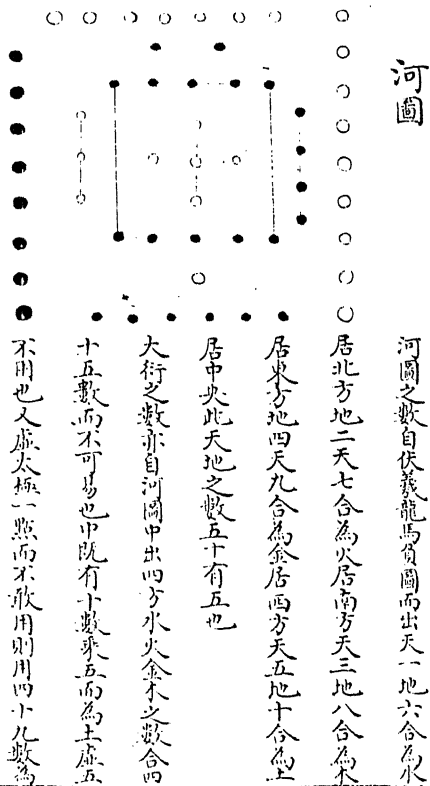 河圖
河圖之數自伏羲龍馬負圖而出天一地六合為水
居北方地二天七合為火居南方天三地八合為木
居東方地四天九合為金居西方天五地十合為土
居中央此天地之數五十有五也
大衍之數亦自河圖中出四方水火金木之數合四
十五數而不可易也中既有十數乘五而為土虛五
不用也又虛太極一點而不敢用則用四十九數為